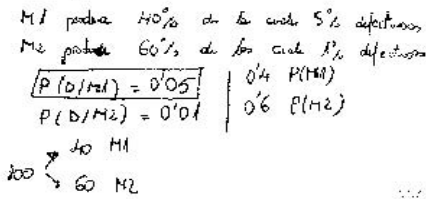 M1 produce 40% de los cuales 5% defectuosos
M2 produce 60% de los cuales 1% defectuosos
P(D/M1) = 0'05 | 0'4 P(M1)
P(D/M2) = 0'01 | 0'6 P(M2)
100 40 M1
60 M2